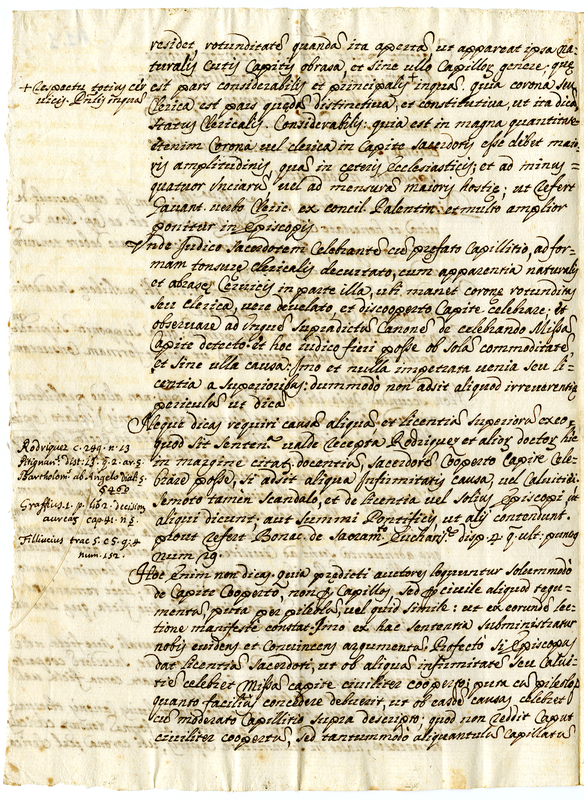 residet, rotunditatē quandā ita apertā, ut appareat ipsa na=
turalis Cutis Capitis obrasa, et sine ullo Capillor genere; quę
est pars considerabilis et principalis + inquā. quia corona seu
Clerica est pars quędā distinctiva, et constitutiva, ut ita dicā
Status Clericalis. Considerabilis: quia est in magna quantitate
etenim Corona vel clerica in Capite Sacerdotis esse debet maio=
ris amplitudinis, quā in ceteris Ecclesiasticis; et ad minus =
quatuor Unciarū, vel ad mensurā maioris hostię; ut Refert
Gavant. verbo Cleric. ex concil. Palentin. et multo amplior
ponitur in Episcopis
+ Respectu totius cer
vicis. Pnlis inquā
Unde Iudico Sacerdotem Celebrantē cū pręfato Capillitio, ad for=
mam tonsurę Clericalis decurtato, cum apparentia naturalis
et abrasę Cervicis in parte illa, ubi manet coronę rotunditas
seu clerica, vere develato et discooperto Capite celebrare; et
observare ad inguē Supradictū Canonē de celebrando Missā
Capite detecto. et hoc iudico fieri posse ob solā commoditatē
et sine ulla causa: Imo et nulla impetrata venia seu li=
centia a Superioribus: dummodo non adsit aliquod irreverentię
periculū ut dicā
Neque dicas requiri causā aliquā, et licentiā Superiorū ex eo,
quod sit Sententiā valde recepta Rodriquez et alior doctor hic
in margine citat. docentiū, Sacerdotē Cooperto Capite Cele=
brare posse, si adsit aliqua Infirmitatis causa, vel Calvitiei
Semoto tamen Scandalo, et de licentia vel Solius Episcopi ut
aliqui dicunt; aut Summi Pontificis, ut alij contendunt.
prout refert Bonac. de Sacram. Eucharis. disp. 4. q. ult. punct.
num. 19.
Rodriquez c. 249. n. 13
Bartholom. ab Angelo dial. 5.
§ 460
Graffius. 1. p. lib. 2. decision
aurear. cap. 41. n. 8.
Fillivcius trac. 5. c. 5. q. 4
num. 152.
Hoc enim non dicas. quia prędicti auctores loquuntur solummodo
de Capite Cooperto, non p Capillos, Sed p civile aliquod tegu=
mentū, puta per pileolū, vel quid simile: ut ex eorundē lec=
tione manifestē constat. Imo ex hac sententia Subministratur
nobis evidens et Convincens argumentū. Profectò si Episcopus
dat licentiā Sacerdoti, ut ob aliquā infirmitatē Seu Calvi=
tiē celebret Missā capite civiliter cooperto; puta cū pileolo,
quanto faciliā concedere debuerit, ut ob eādē causā celebret
cū moderato Capillitio supra descripto; quod non reddit Caput
civiliter coopertū, sed tantummodò aliquantulū Capillatū